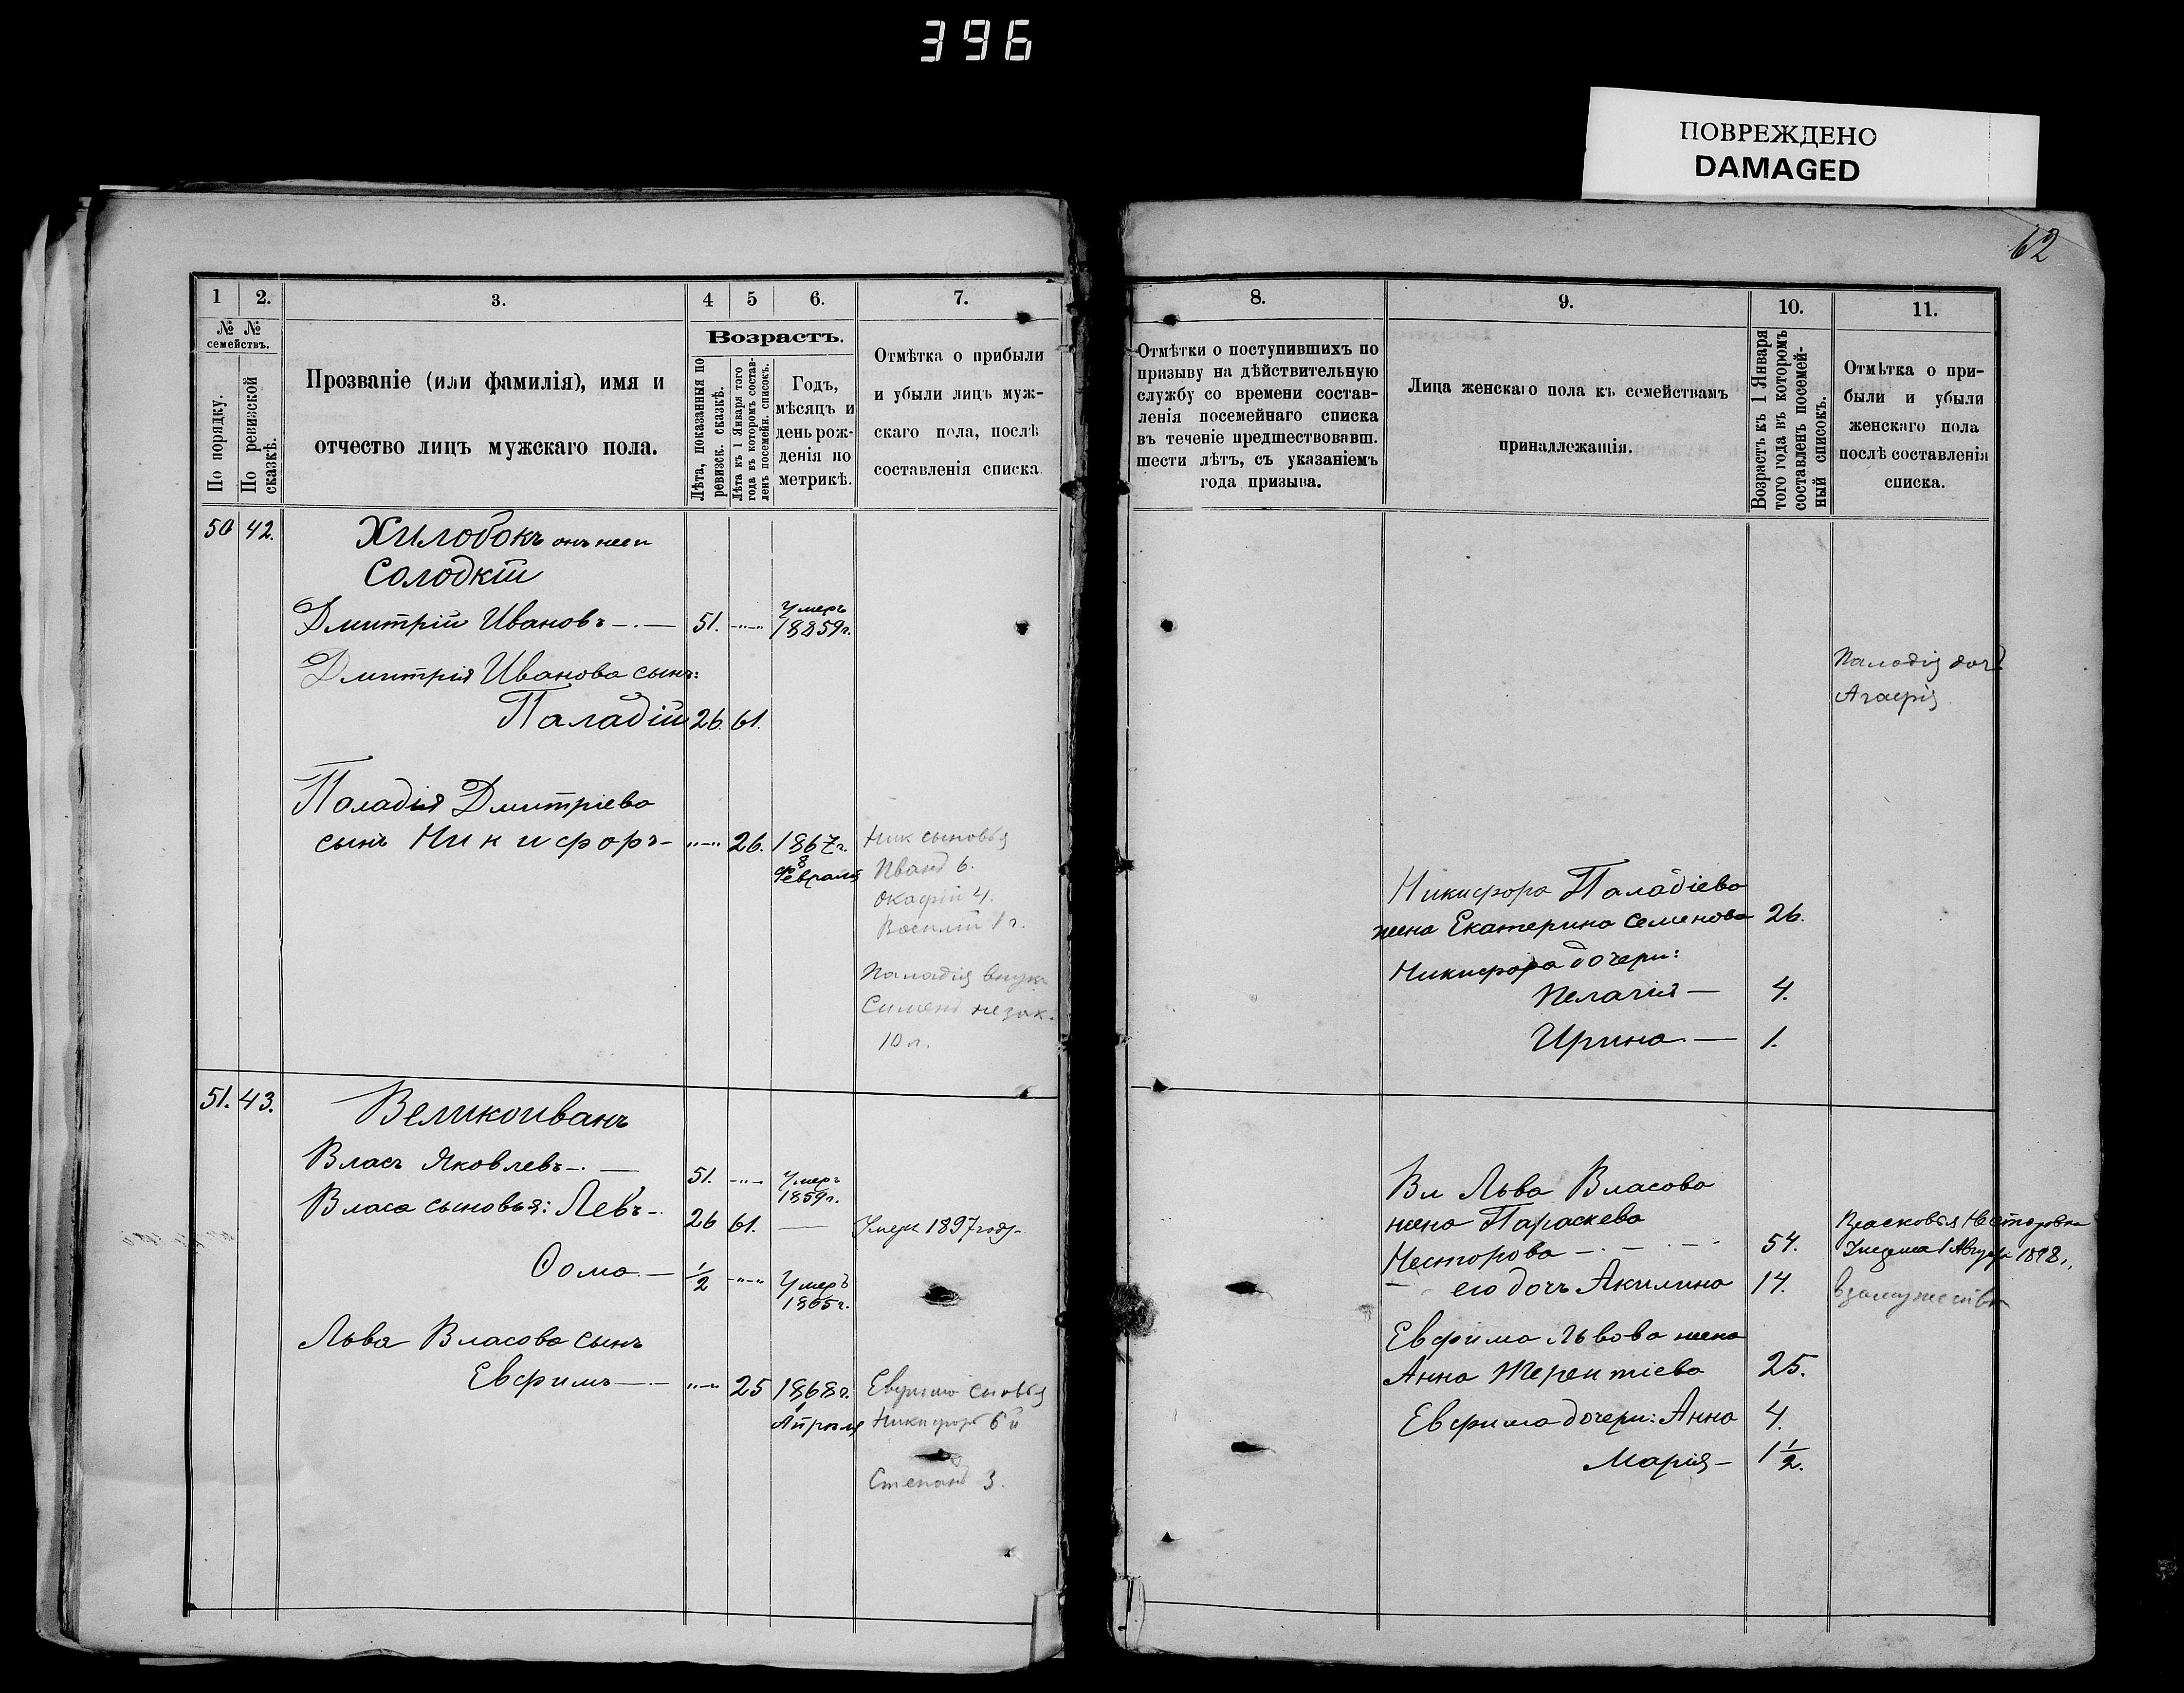 396
ПОВРЕЖДЕНО
DAMAGED
62
1
2.
3.
4
5
6.
7.
№ №
семействъ.
По порядку.
По ревизской
сказкѣ.
Прозваніе (или фамилія), имя и
отчество лицъ мужскаго пола.
Возрастъ.
Лѣта, показанныя по
ревизск. сказкѣ.
Лѣта къ 1 Января того
года въ которомъ состав-
ленъ посемейн. списокъ.
Годъ,
мѣсяцъ и
день рож-
денія по
метрикѣ.
Отмѣтка о прибыли
и убыли лицъ муж-
скаго пола, послѣ
составленія списка.
50 42. Хилобокъ онъ
Солодкій
Дмитрій Ивановъ 51. Умеръ
1859г.
Дмитрія Иванова сынъ:
Паладій 26. 61.
Паладія Дмитріева
сынъ Никифоръ 26. 1867г. Ник сыновья
8
Февраля Иванъ 6.
4.
Василій 1 г.
Паладія внукъ
Сименъ незак.
10 л.
51. 43. Великоиванъ
Власъ Яковлевъ 51. Умеръ
1859г.
Власа сыновья: Левъ 26 61. Умеръ 1897 году
Ѳома 1/2 Умеръ
1865г.
Льва Власова сынъ
Евфимъ 25 1868г. Евфима сновья
1
Апрѣля Никифоръ 6 и
Степанъ 3.
8.
9.
10.
11.
Отмѣтки о поступившихъ по
призыву на дѣйствительную
службу со времени состав-
ленія посемейнаго списка
въ теченіе предшествовавш.
шести лѣтъ, съ указаніемъ
года призыва.
Лица женскаго пола къ семействамъ
принадлежащія.
Возрастъ къ 1 Января
того года въ которомъ
составленъ посемей-
ный списокъ.
Отмѣтка о при-
были и убыли
женскаго пола
послѣ составленія
списка.
Паладія дочь
Никифора Паладіева
жена Екатерина Семенова 26.
Никифора дочери:
Пелагія 4.
Ирина 1.
Вл Льва Власова
жена Параскева
Несторова 54.
Прасковья Несторовна
1 Августа 1898г.
его дочь Акилина 14. взамужествѣ
Евфима Львова жена
Анна Терентіева 25.
Евфима дочери: Анна 4.
Марія 1 1/2.